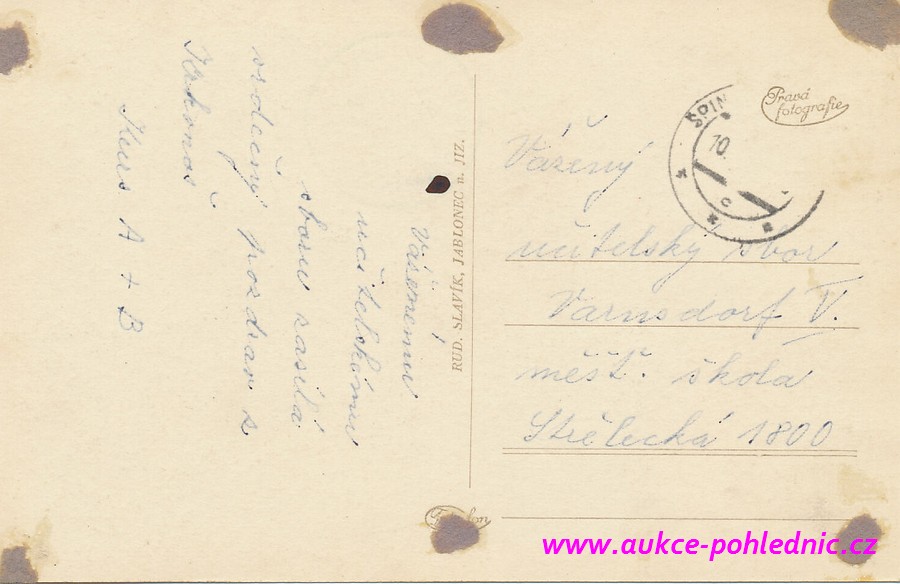 Váženému
učitelskému
sboru zasílá
srdečný pozdrav z
Krkonoš
Kurs A + B
RUD. SLAVÍK, JABLONEC n. JIZ.
Pravá
fotografie
ŠPIN
10.
C
Vážený
učitelský sbor
Varnsdorf V.
měšť. škola
Střelecká 1800
www.aukce-pohlednic.cz